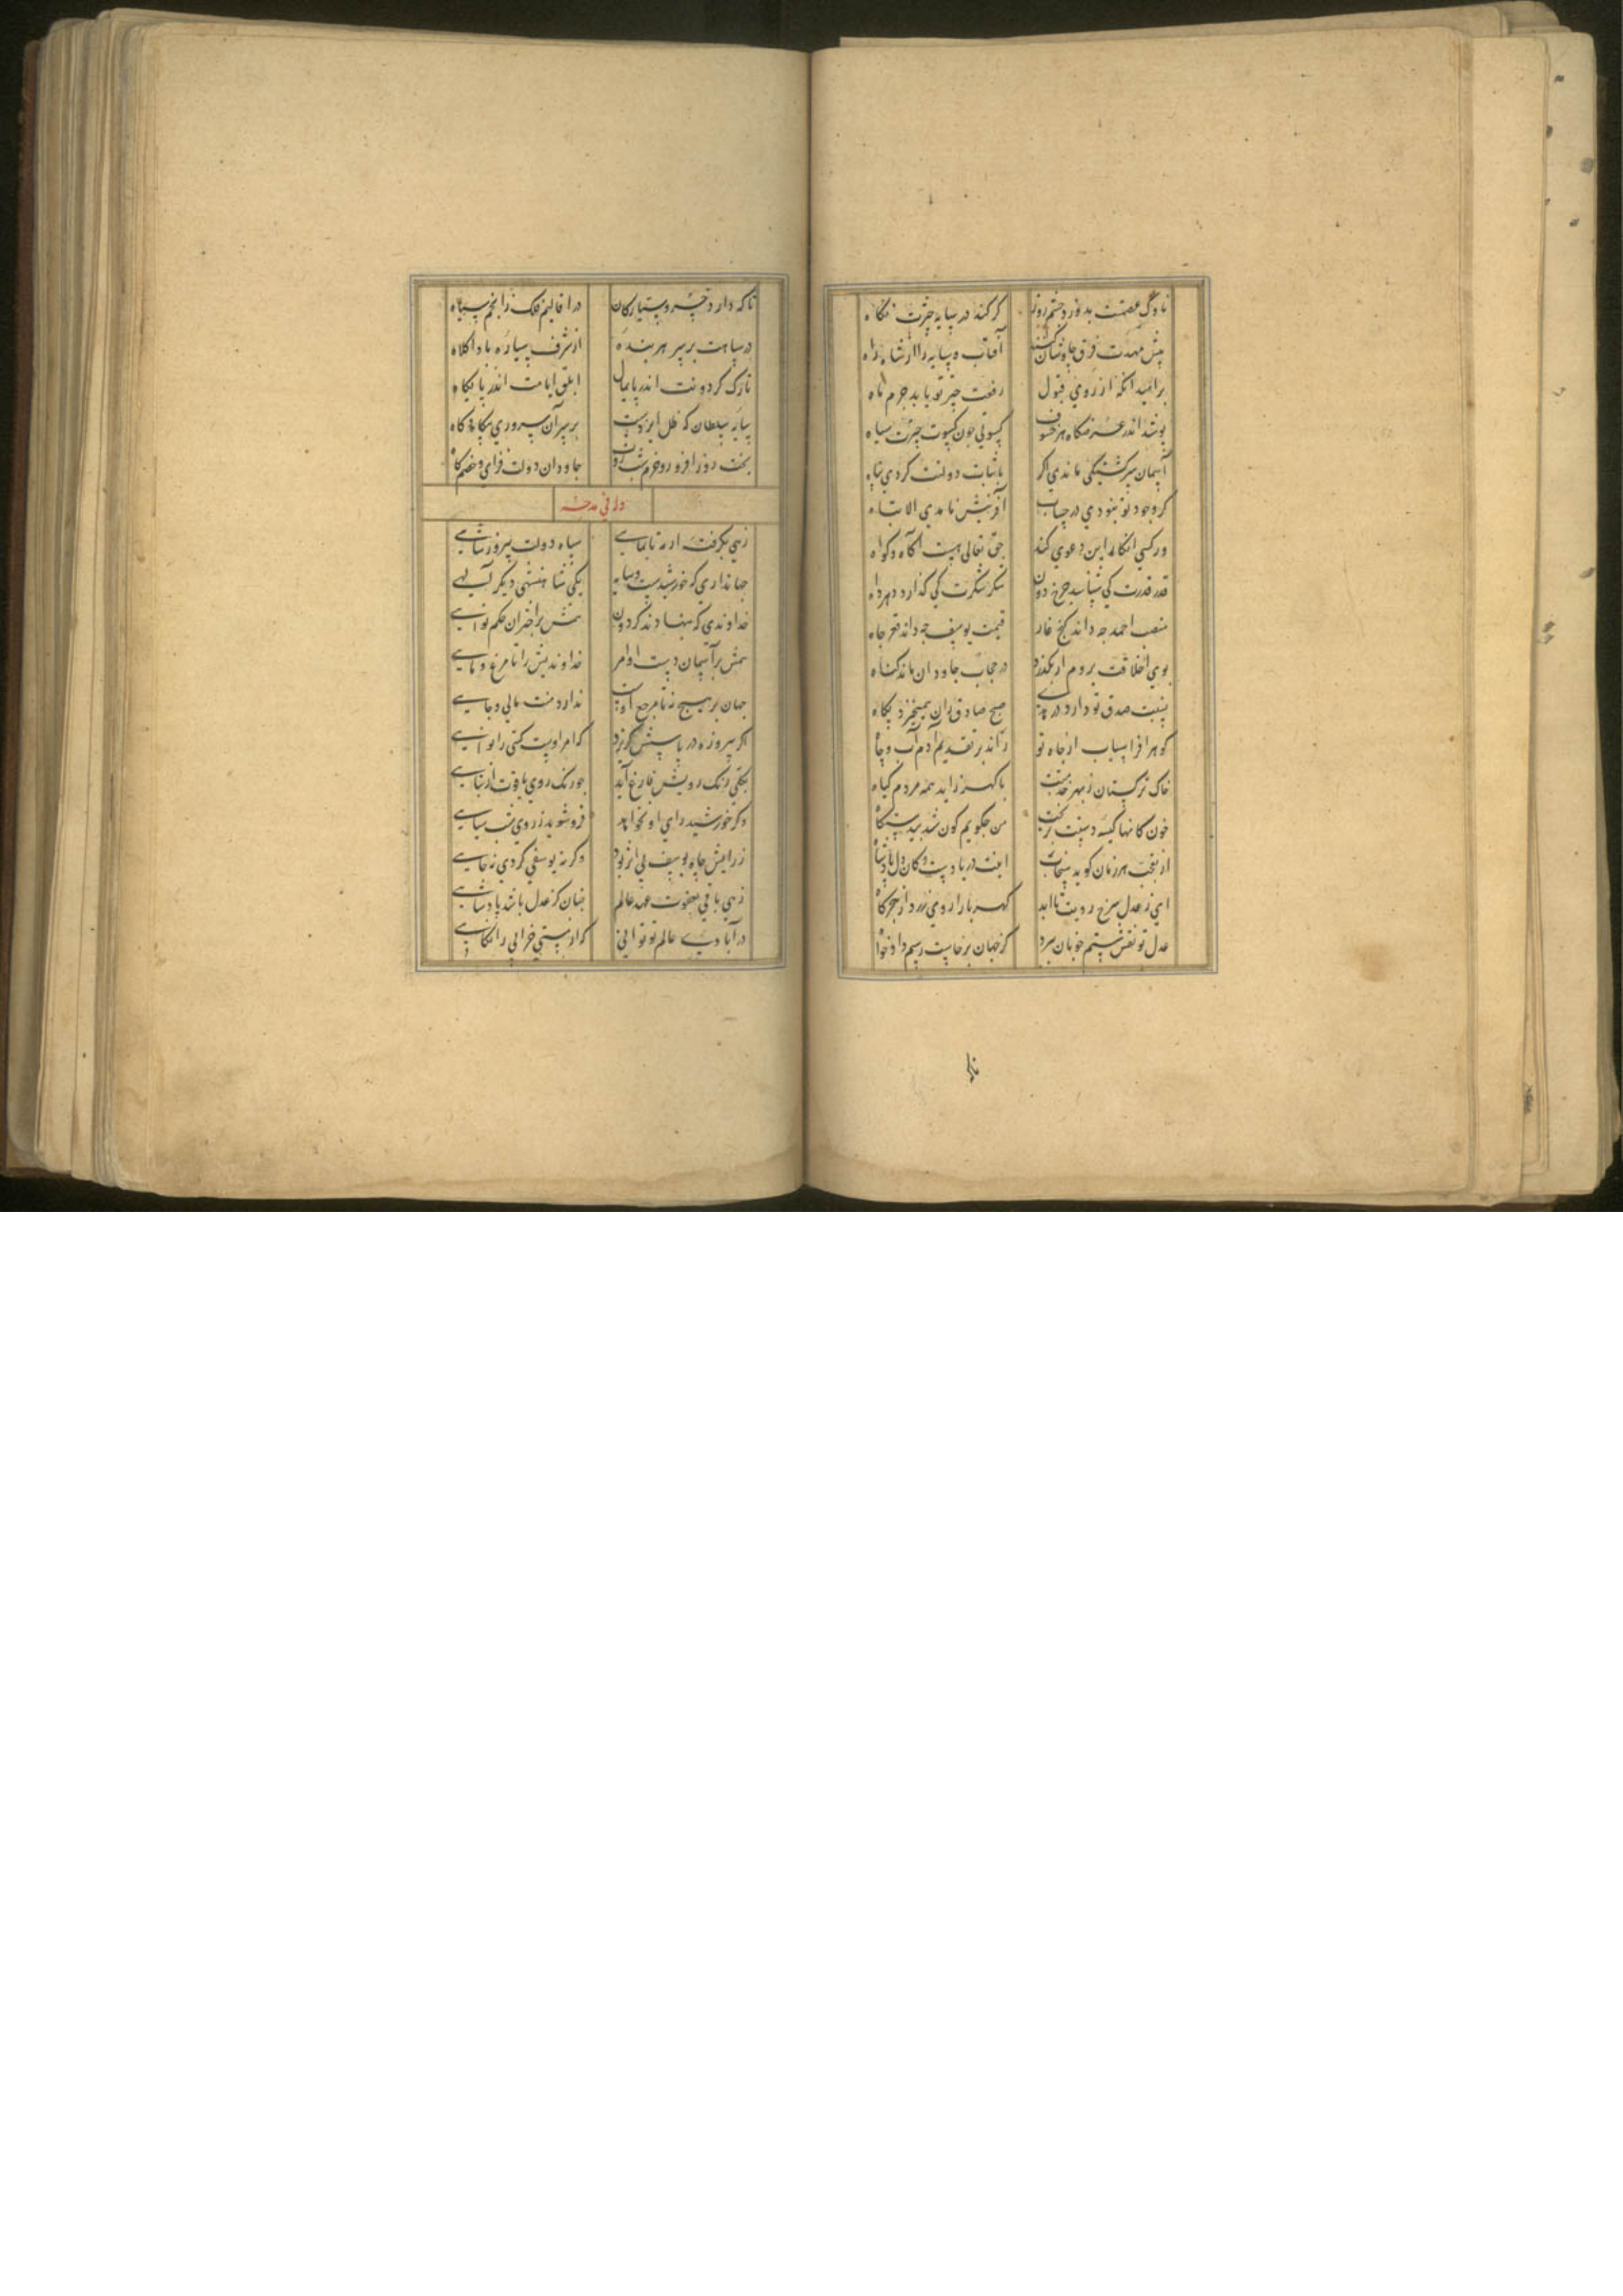 ناوک عصمت بدوزد چشم روز کر کند در سایه چترت نکاه
پیش مهدت فرق چاوشان کنند آفتاب و سایه را از شاه راه
بر امید انکه از روی قبول رفعت چتر تو یابد جرم ماه
پوشد اندر عرصه‌کاه هر خسوف کسوتی جون کسوت چترت سیاه
آسمان سرکشتکی ماندی اکر باثبات دولتت کردی پناه
کر وجود تو نبودی در حساب آفرینش نامدی الا تباه
ور کسی انکار این دعوی کند حق تعالی هست آکاه و کواه
قدر قدرت کی شناسد چرخ دون شکر شکرت کی کذارد دهر داه
منصب احمد چه داند کنج غار قیمت یوسف چه داند قعر چاه
بوی اخلاقت بروم ار بکذرد در حجاب جاودان ماند کناه
نسبت صدق تو دارد در هدی صبح صادق زان همیخیزد پکاه
کوهر افراسیاب از جاه تو راند بر تقدیم آدم آب و جاه
خاک ترکستان ز بهر خدمتت با کهر زاید همه مردم کیاه
خون کانها کیسه دستت بریخت من چکویم کون شد بیدستکاه
از تعجب هر زمان کوید سخات اینت دریا دست و کان دل پادشاه
ای ز عدل سرخ رویت تا ابد کهربا را روی زرد از هجر کاه
عدل تو نقش ستم چونان ببرد کز جهان برخاست رسم دادخواه
تاکه
تا که دارد خسرو سیارکان در اقالیم فلک ز انجم سپاه
در سپاهت بر سر هر بنده از شرف سیاره بادا کلاه
تارک کردونت اندر پایمال ابلق ایامت اندر پایکاه
سایه سلطان که ظل ایزدست بر سر آن سروری بیکاه و کاه
بخت روز افزون و حزم شب روت جاودان دولت فزای و خصم کاه
وله فی مدحه
زهی بکرفته از مه تا بماهی سپاه دولت پیروز شاهی
جهانداری که خورشیدست و سایه یکی شاهنشهی دیکر آلهی
خداوندی که بنهادند کردون بر اختران حکم نواهی
بر آسمان دست اوامر خداوندیش را تا مرغ و ماهی
جهان بر هیچ نه تا مرجع اوست ندارد منت مالی و جاهی
اکر پیروزه در پاسش کریزد که امر اوست کیتی را نواهی
بکلی رنک رویش فارغ آید چو رنک روی یاقوت از تباهی
وکر خورشید رای او نخواهد فروشوید ز روی شب سیاهی
ز رایش چاه یوسف بی اثر بود وکرنه یوسفی کردی نه چاهی
زهی باقی بعفوت عهد عالم چنان کز عدل باشد پادشاهی
در آبادیء عالم تو توانی که از مستی خرابی را بکاهی